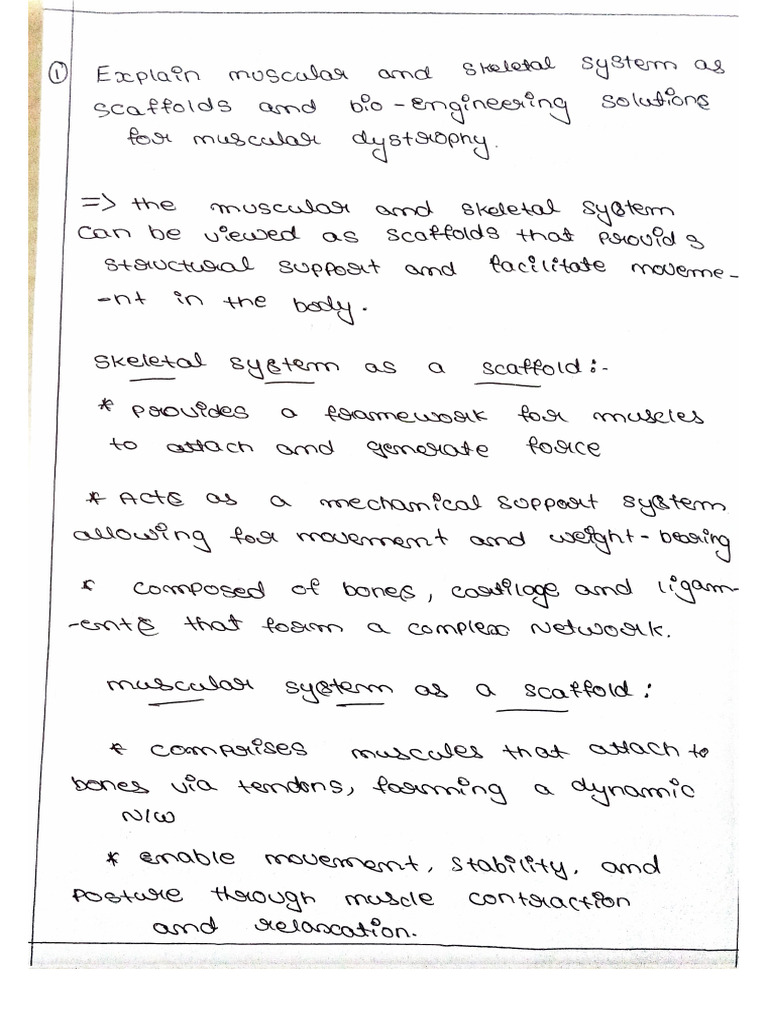 ① Explain muscular and skeletal system as
scaffolds and bio-engineering solutions
for muscular dystrophy.
=> the muscular and skeletal system
can be viewed as scaffolds that provids
structural support and facilitate moveme-
-nt in the body.
skeletal system as a scaffold:-
* provides a framework for muscles
to attach and generate force
* Acts as a mechanical support system
allowing for movement and weight-bearing
* composed of bones, cartilage and ligam-
-ents that form a complex network.
muscular system as a scaffold:
* comprises muscules that attach to
bones via tendons, forming a dynamic
N/W
* enable movement, stability, and
posture through muscle contraction
and relaxation.